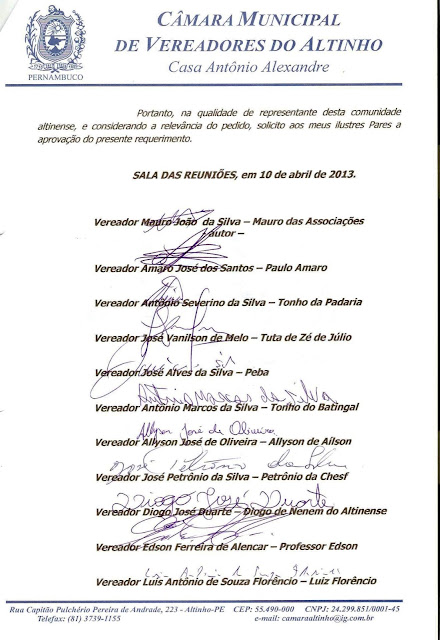 CÂMARA MUNICIPAL
DE VEREADORES DO ALTINHO
Casa Antônio Alexandre
PERNAMBUCO
Portanto, na qualidade de representante desta comunidade
altinense, e considerando a relevância do pedido, solicito aos meus ilustres Pares a
aprovação do presente requerimento.
SALA DAS REUNIÕES, em 10 de abril de 2013.
Vereador Mauro João da Silva – Mauro das Associações
autor –
Vereador Amaro José dos Santos – Paulo Amaro
Vereador Antônio Severino da Silva – Tonho da Padaria
Vereador José Vanilson de Melo – Tuta de Zé de Júlio
Vereador José Alves da Silva – Peba
Antônio Marcos da Silva
Vereador Antônio Marcos da Silva – Tonho do Batingal
Allyson José de Oliveira
Vereador Allyson José de Oliveira – Allyson de Aílson
José Petrônio da Silva
Vereador José Petrônio da Silva – Petrônio da Chesf
Diogo José Duarte
Vereador Diogo José Duarte – Diogo de Nenem do Altinense
Vereador Edson Ferreira de Alencar – Professor Edson
Vereador Luís Antônio de Souza Florêncio – Luiz Florêncio
Rua Capitão Pulchério Pereira de Andrade, 223 - Altinho-PE CEP: 55.490-000 CNPJ: 24.299.851/0001-45
Telefax: (81) 3739-1155 e-mail: camaraaltinho@ig.com.br